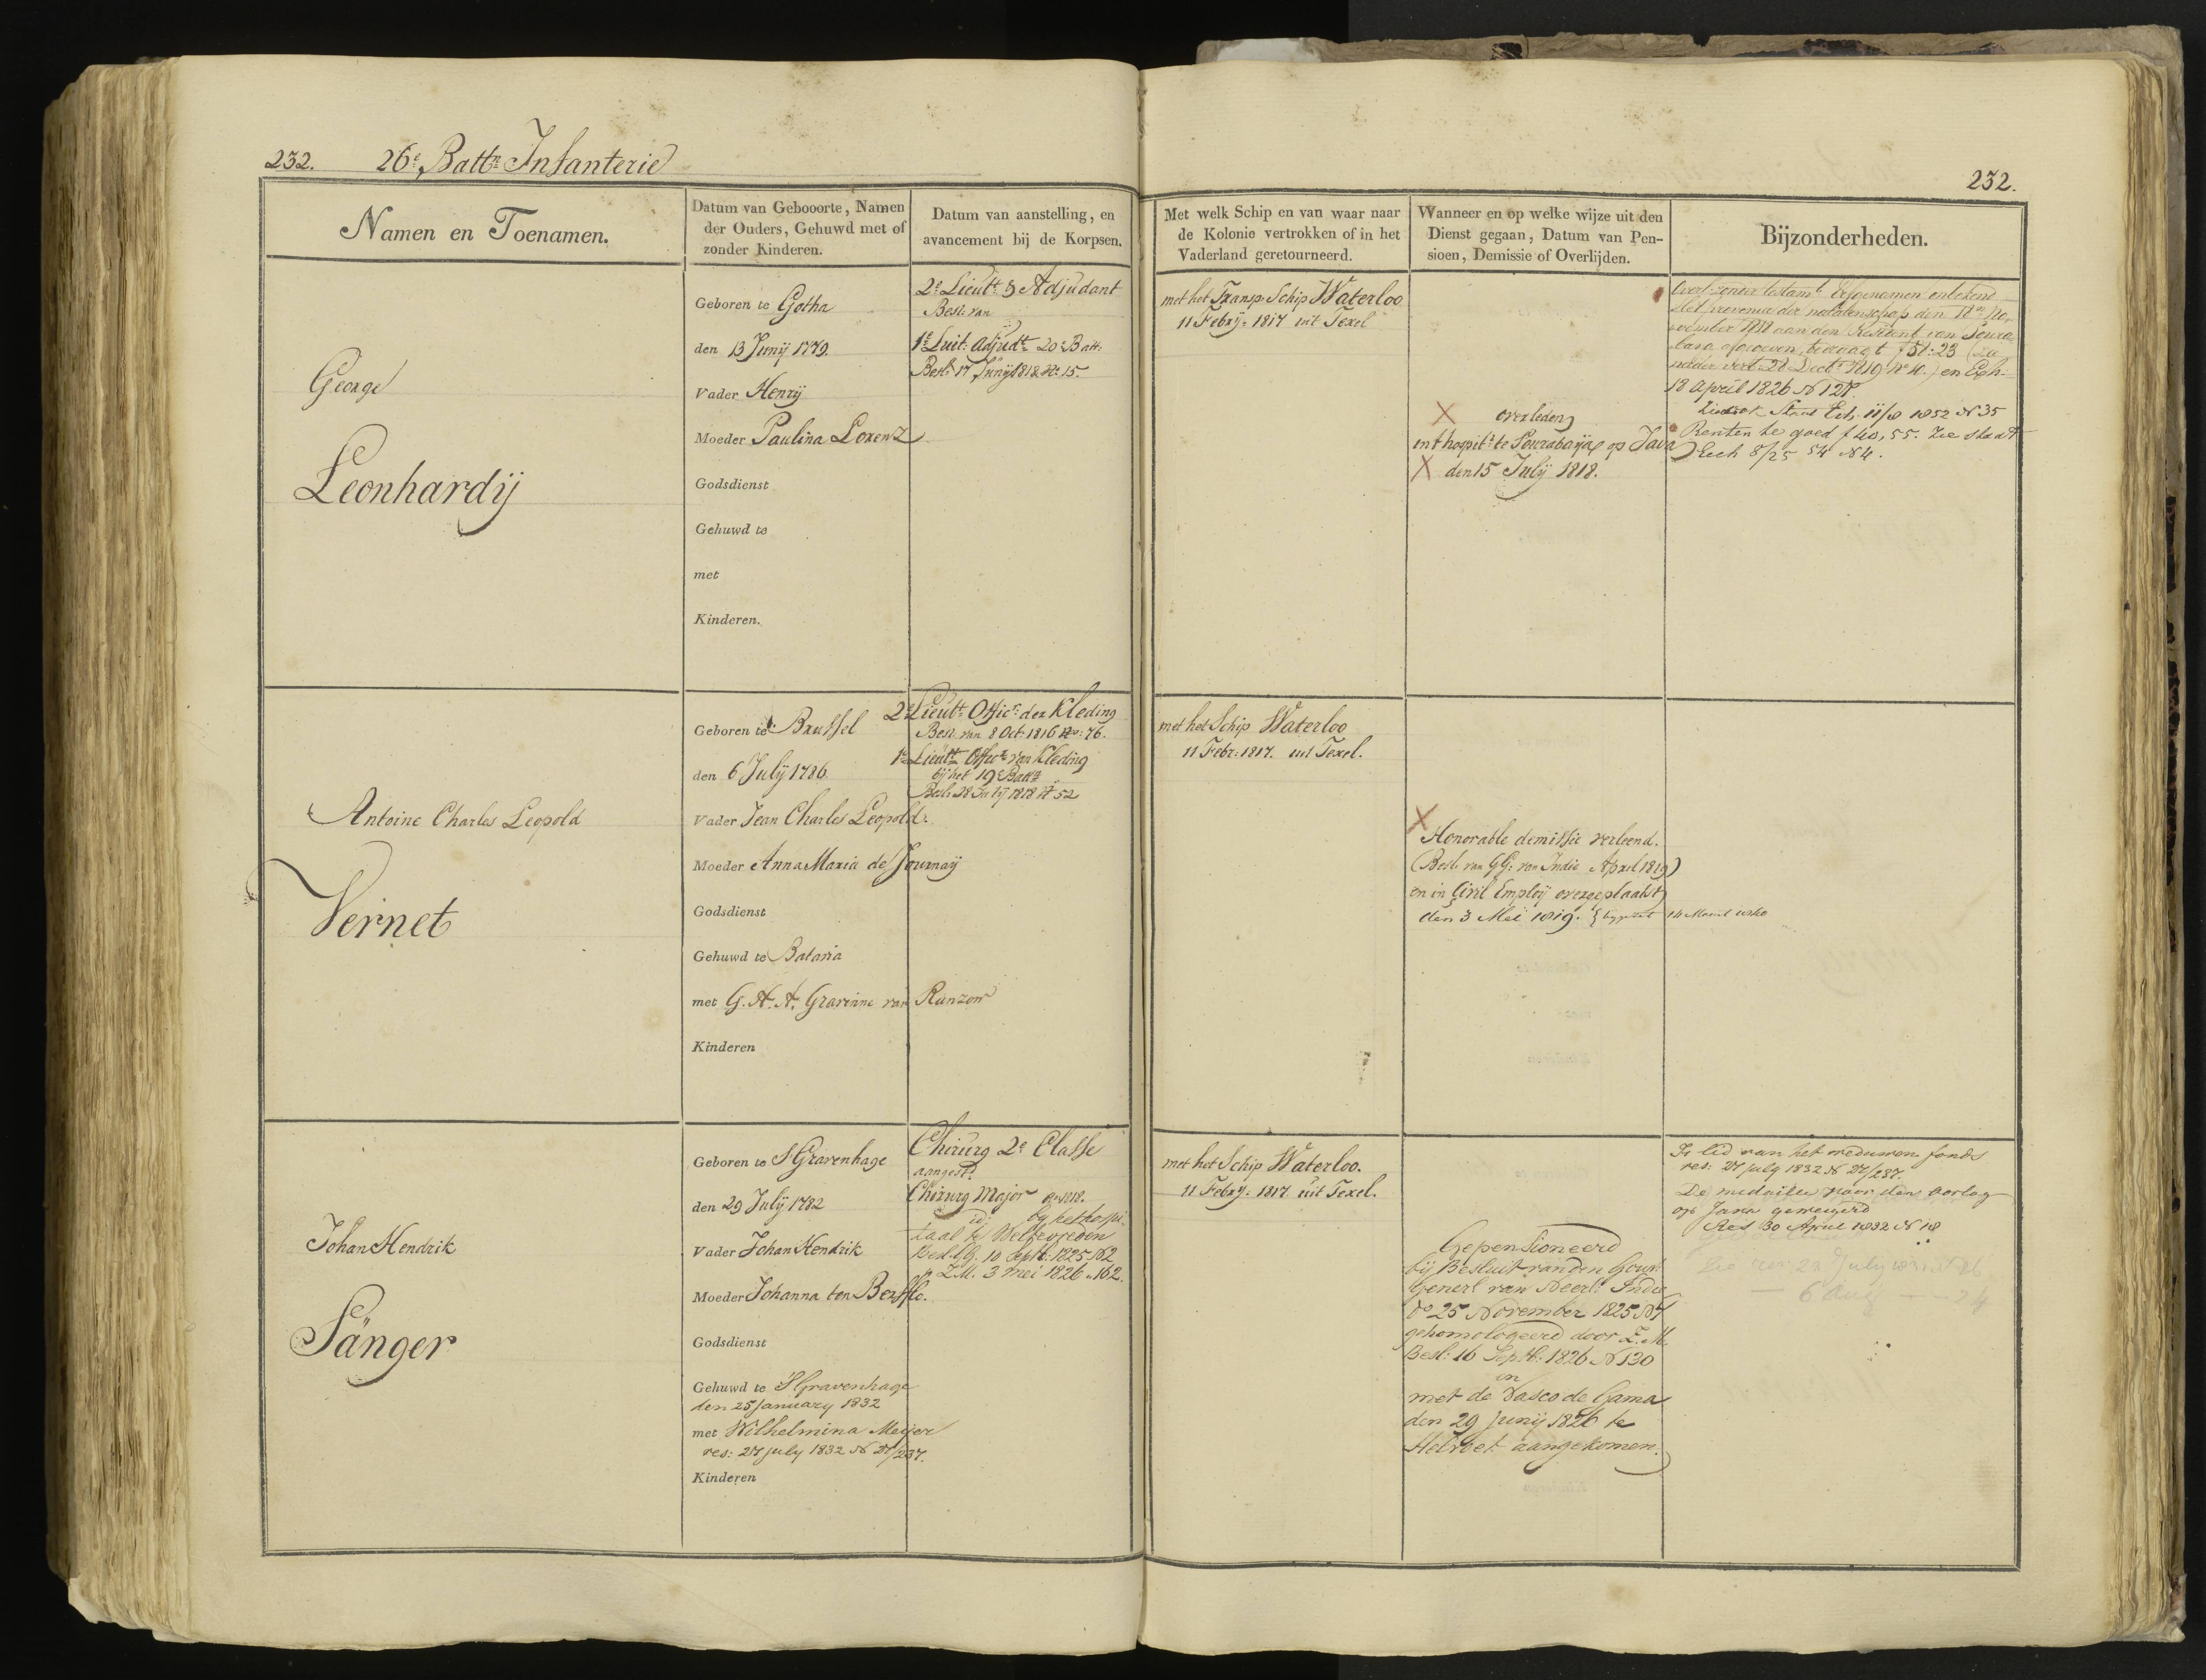 232. 26e Battn Infanterie
232.
Namen en Toenamen.
Datum van Gebooorte, Namen
der Ouders, Gehuwd met of
zonder Kinderen.
Datum van aanstelling, en
avancement bij de Korpsen.
Met welk Schip en van waar naar
de Kolonie vertrokken of in het
Vaderland geretourneerd.
Wanneer en op welke wijze uit den
Dienst gegaan, Datum van Pen-
sioen, Demissie of Overlijden.
Bijzonderheden.
George
Leonhardij
Geboren te Gotha
den 13 Junij 1779.
Vader Henrij
Moeder Paulina Lorenz
Godsdienst
Gehuwd te
met
Kinderen.
2e Lieutt & Adjudant
Besl: van
1e Luit: Adjudt 20e Batt:
Besl: 17 Junij 1818 No 15.
met het Transp: Schip Waterloo
11 Febrij: 1817 uit Texel
X overleden
in t hospitl te Sourabaija op Java
X den 15 Julij 1818.
Overl: zonder testamt Erfgenamen onbekend
Het provenu der nalatenschap den 18n No-
vember 1818 aan den Resident van Soura-
baya afgegeven, bedraagt f 51:23 (Zie
28 Dect 1819 No 4.) en Exh:
18 April 1826 No 127.
Zie ook Staat Exh. 11/8 1852 No 35
Renten te goed f 40,55. Zie staat
Exh 8/25 54 No 4.
Antoine Charles Leopold
Vernet
Geboren te Brussel
den 6 Julij 1786
Vader Jean Charles Leopold.
Moeder Anna Maria de Journaij
Godsdienst
Gehuwd te Batavia
met G. A. A. Gravinne van Ranzow
Kinderen
2e Lieutt Officr der Kleding
Besl: van 8 Oct: 1816 No: 76.
1e Lieutt Officr van Kleding
bij het 19e Battn
Besl: 28 Julij 1818 No 52
met het Schip Waterloo
11 Febr: 1817. uit Texel.
X
Honorable demissie verleend.
(Besl: van GG: van Indie April 1819)
en in Civil Emploij overgeplaatst
den 3 Mei 1819. 14 Maart 1840
Johan Hendrik
Sänger
Geboren te S'Gravenhage
den 29 Julij 1782
Vader Johan Hendrik
Moeder Johanna ten Bersse.
Godsdienst
Gehuwd te S'Gravenhage
den 25 January 1832
met Wilhelmina Meijer
res: 27 july 1832 No 27/237.
Kinderen
Chirurg 2e Classe
aangest:
Chirurg Major 1818.
id: by het hospi-
taal te Weltevreden
Besl. GG. 10 Septb: 1825 No 2
Z.M. 3 mei 1826 No 162.
met het Schip Waterloo.
11 Febrij: 1817. uit Texel.
Gepensioneerd
bij Besluit van den Gouvr
Generl van Neerl: Indie
do 25 November 1825 No 7
gehomologeerd door Z.M.
Besl: 16 Septb: 1826 No 130
en
met de Vasco de Gama
den 29 Junij 1826 te
Helvoet aangekomen.
Is lid van het weduwen fonds
res: 27 july 1832 No 27/237.
De medaille voor den oorlog
op Java geweigerd
Res 30 April 1832 No 18
6 aug 24